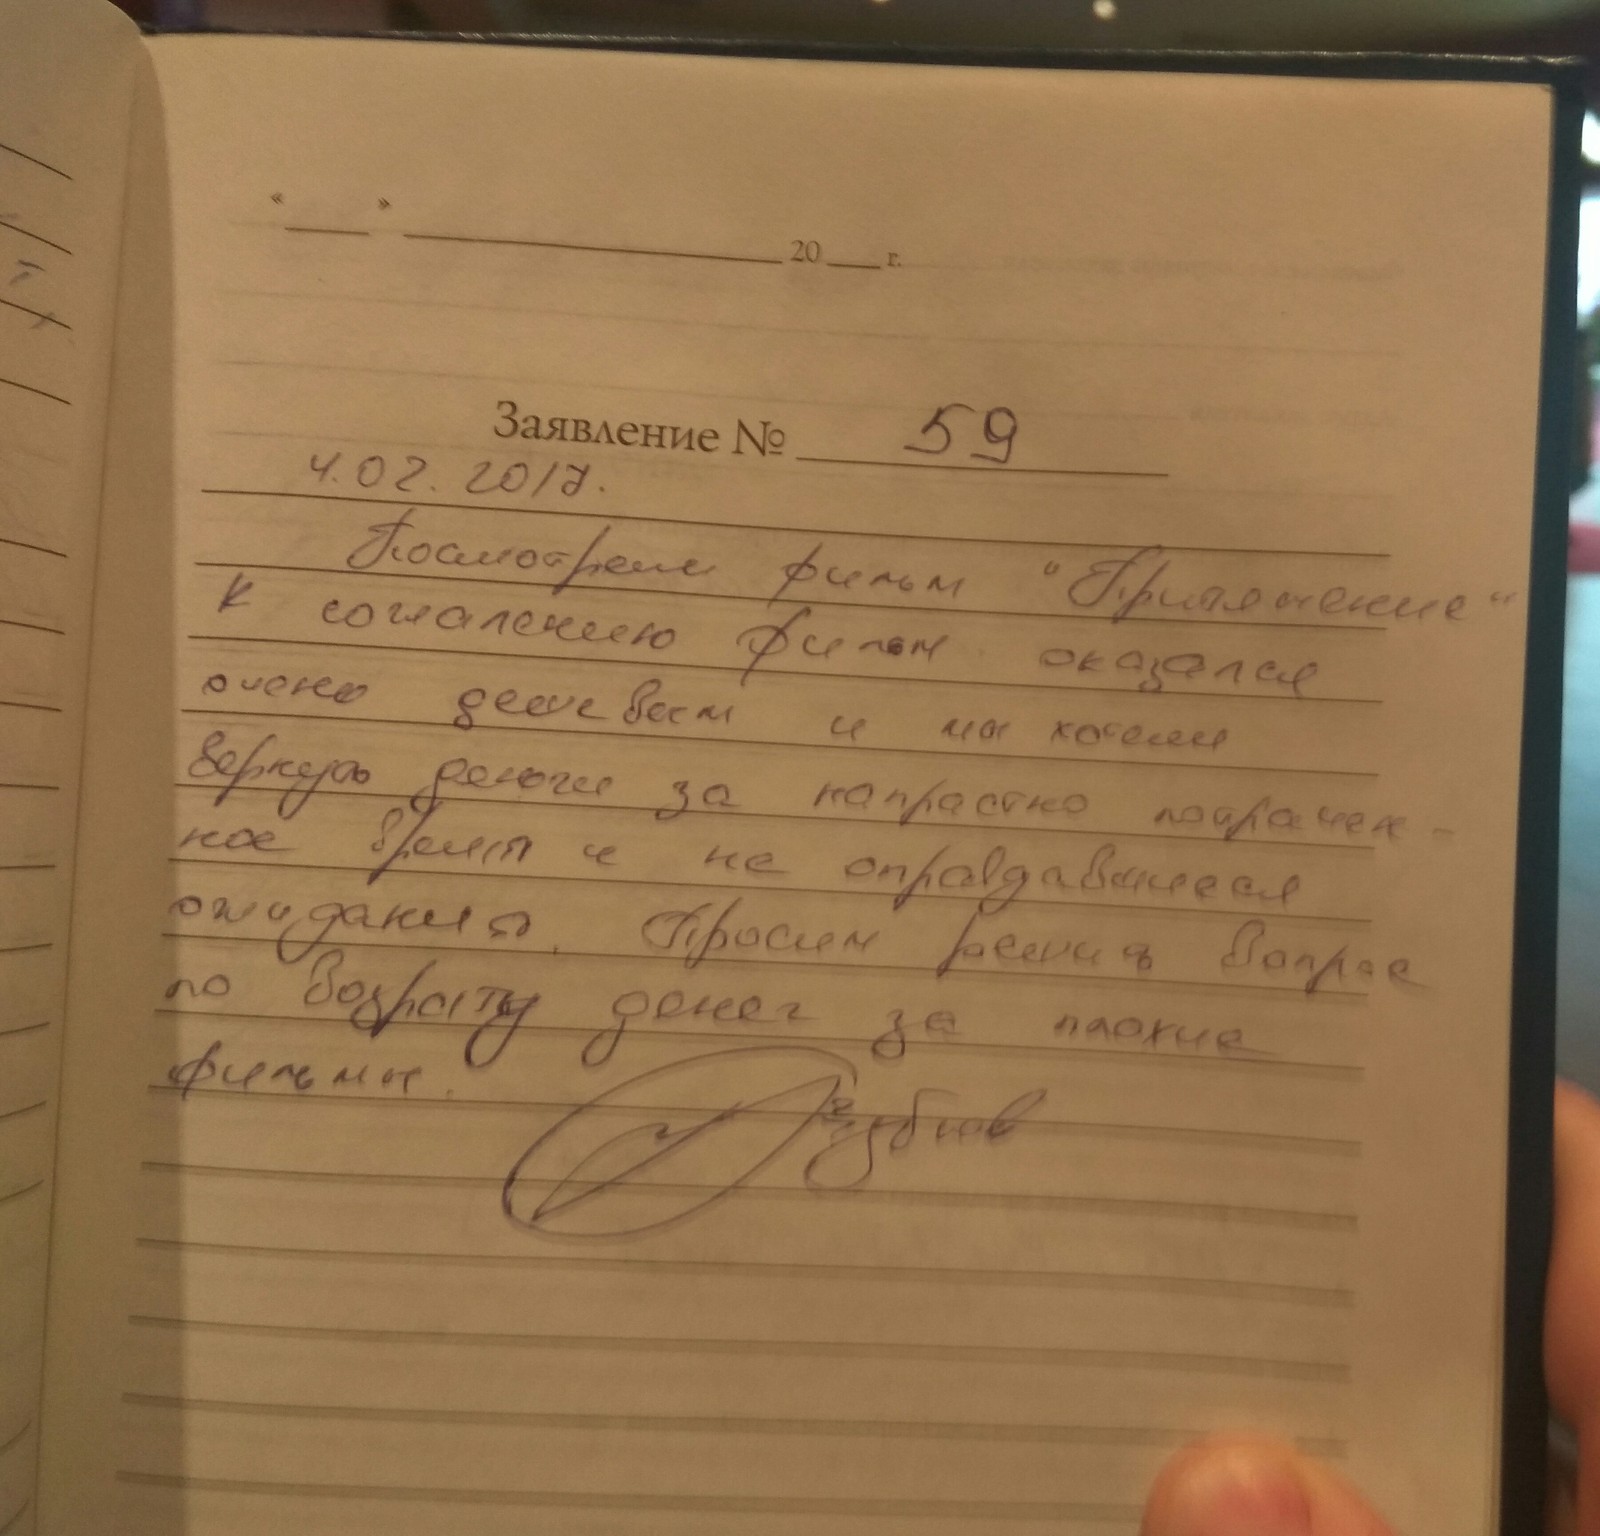 « » 20 г.
Заявление № 59
4.02.2017.
Посмотрели фильм "Притяжение"
К сожалению фильм оказался
очень дешевым и мы хотели
вернуть деньги за напрастно потрачен-
ное время и не оправдавшиеся
ожидания. Просим решить вопрос
по возрату денег за плохие
фильмы.